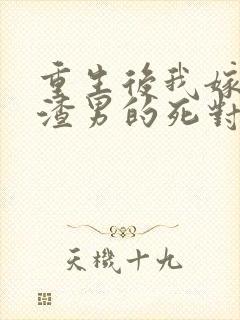 重生後我嫁
渣男的死對
天機十九